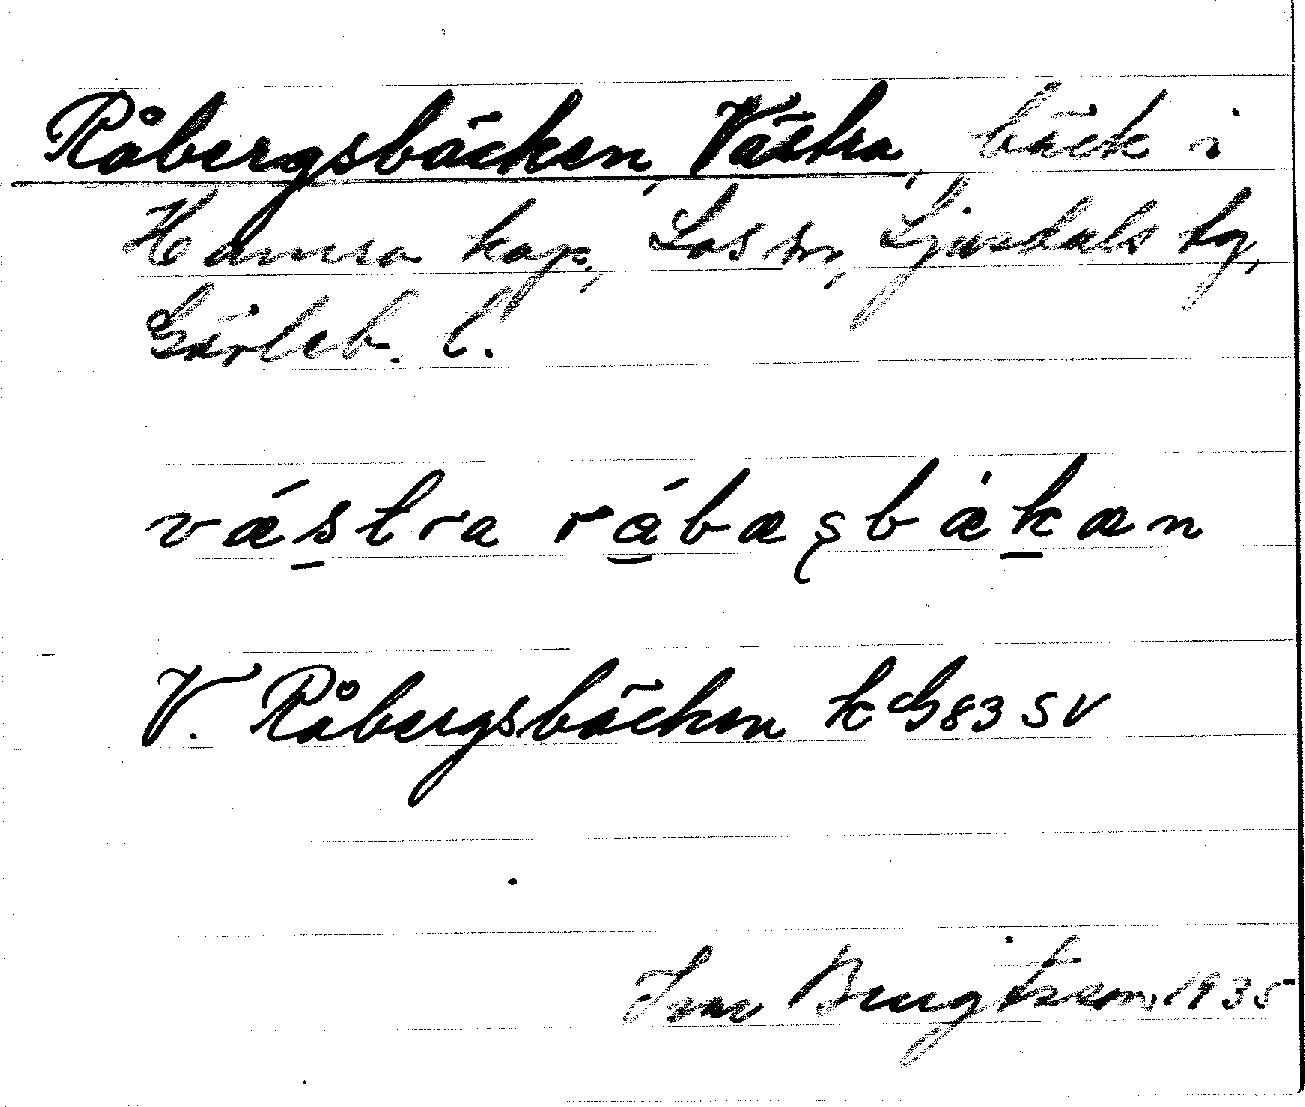 Råbergsbäcken, Västra, bäck i
Hamra kap., Los sn, Ljusdals tg,
Gävleb. l.
västra råbæṣbäkæn
V. Råbergsbäcken k G83 SV
Ivar Bengtsson 1935